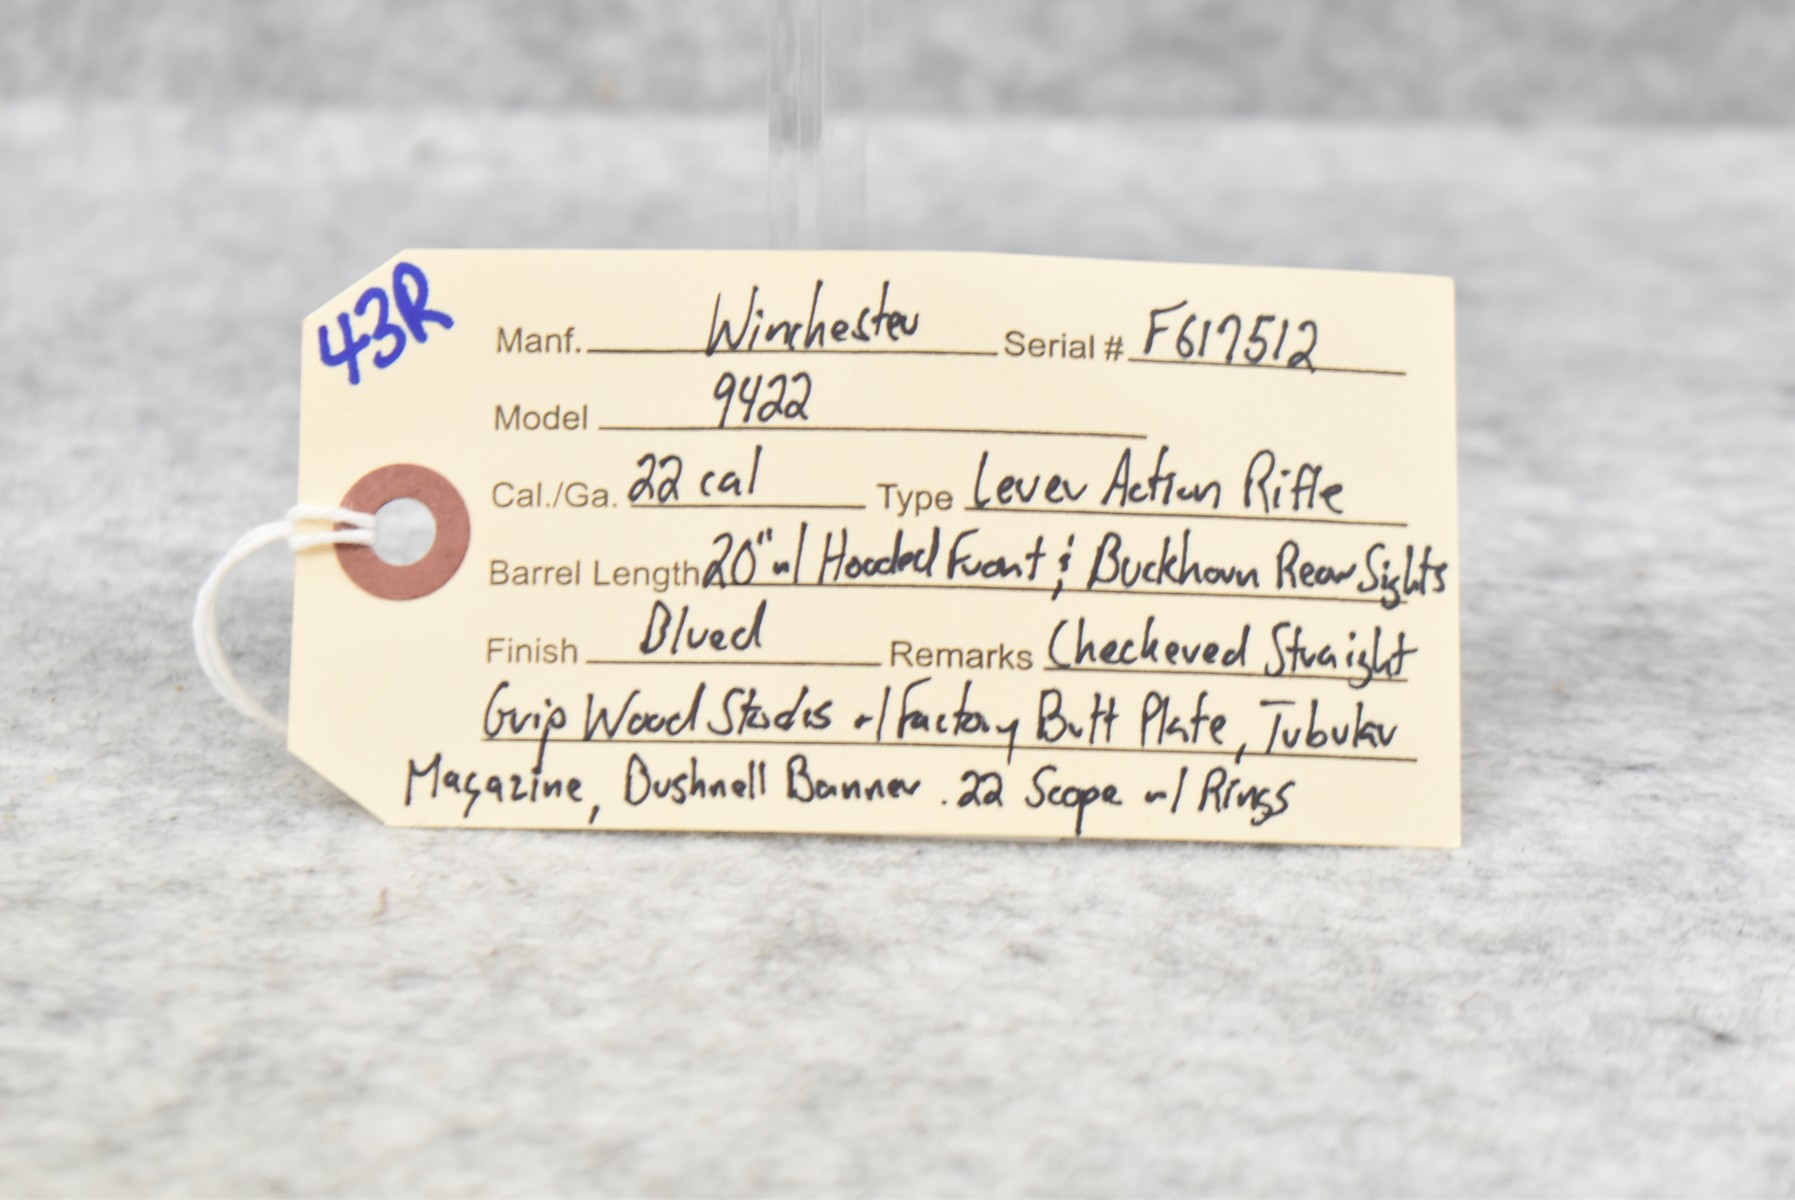 43R
Manf. Winchester Serial # F617512
Model 9422
Cal./Ga. 22 cal Type Lever Action Rifle
Barrel Length 20" w/ Hooded Front & Buckhorn Rear Sights
Finish Blued Remarks Checkered Straight
Grip Wood Stocks w/ Factory Butt Plate, Tubular
Magazine, Bushnell Banner .22 Scope w/ Rings